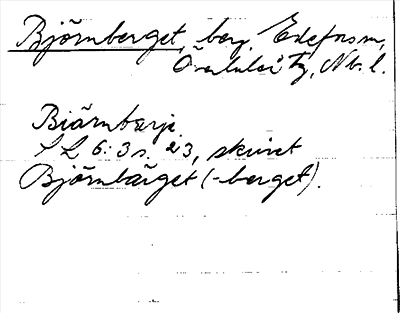 Björnberget, berg, Edefors sn,
Överluleå tg, Nb. l.
Biärnbærje.
SL 6:3 s. 23, skrivet
Björnbärget (-berget).